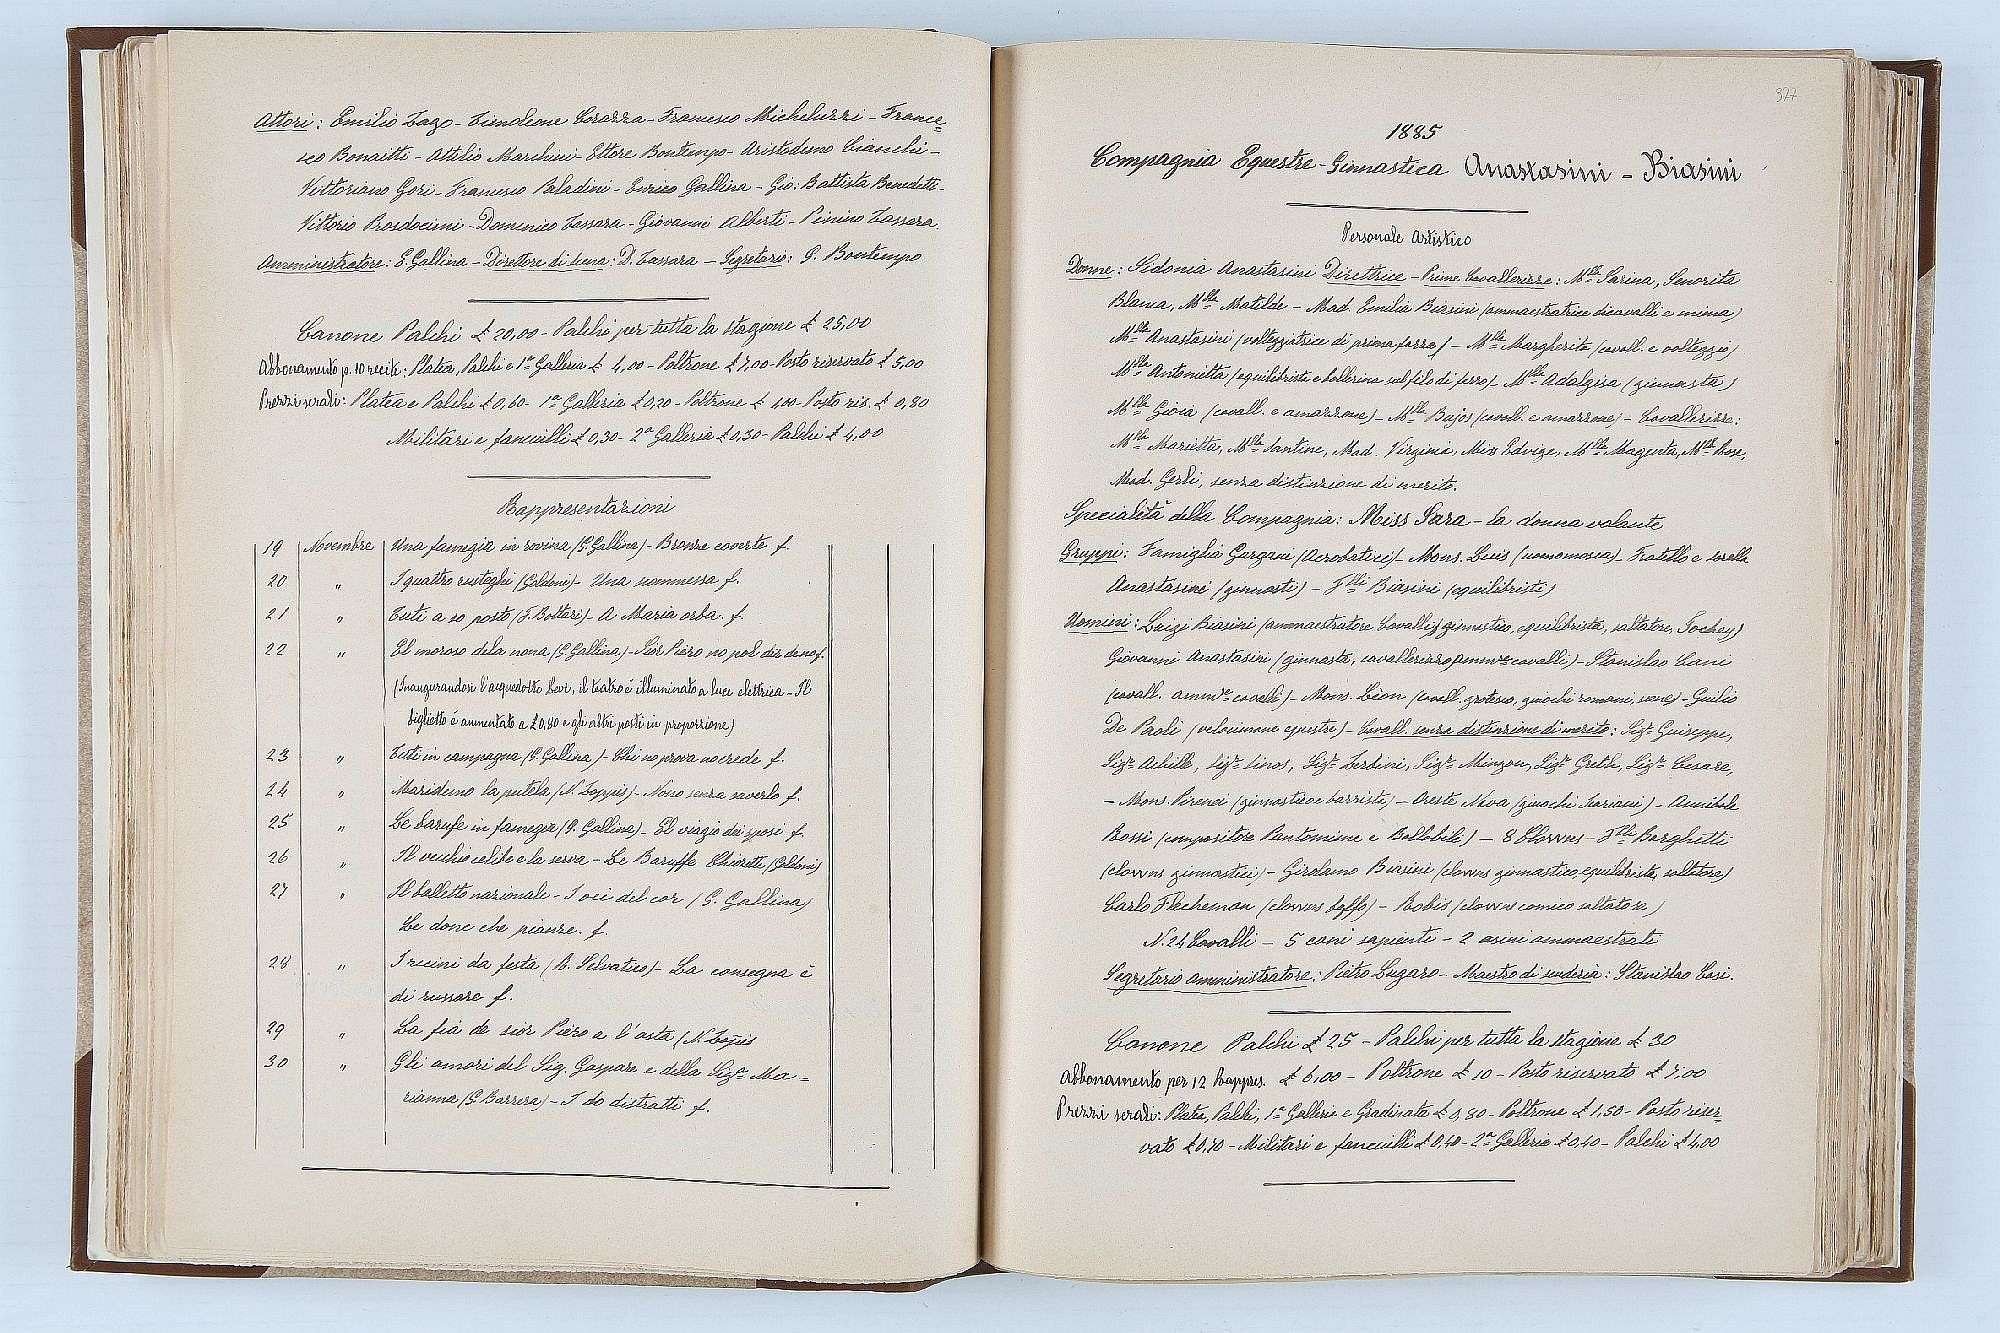 Attori: Emilio Zago - Tiendeone Corazza - Francesco Micheluzzi - France=
sco Bonaitti - Attilio Marchini - Ettore Bontempo - Aristodemo Cianchi -
Vittoriano Gori - Francesco Paladini - Enrico Gallina - Gio: Battista Benedetti -
Vittorio Prosdocimi - Domenico Zassara - Giovanni Alberti - Pinino Zassara.
Amministratore: E. Gallina - Direttore di scena: D. Zassara - Segretario: G. Bontempo
Canone Palchi £ 20,00 - Palchi per tutta la stagione £ 25,00
Abbonamento p. 10 recite: Platea, Palchi e 1ª Galleria £ 4,00 - Poltrone £ 7,00 - Posto riservato £ 5,00
Prezzi serali: Platea e Palchi £ 0,60 - 1ª Galleria £ 0,20 - Poltrone £ 1,00 - Posto ris. £ 0,80
Militari e fanciulli £ 0,30 - 2ª Galleria £ 0,30 - Palchi £ 4,00
Rappresentazioni
19 Novembre Una famegia in rovina (G. Gallina) - Bronze coverte f.
20 " I quattro rusteghi (Goldoni) - Una scommessa f.
21 " Tuti a so posto (F. Bottari) - A Maria orba. f.
22 " El moroso dela nona (G. Gallina) - Sior Piero no pol dir de no f.
(Inaugurandosi l'acquedotto Levi, il teatro è illuminato a luce elettrica - Il
biglietto è aumentato a £ 0,80 e gli altri posti in proporzione)
23 " Tuti in campagna (G. Gallina) - Chi no prova no crede f.
24 " Maridemo la putela (N. Zoppis) - Nono senza saverlo f.
25 " Le barufe in famegia (G. Gallina) - El viagio dei sposi f.
26 " Il vecchio celibe e la serva - Le Baruffe Chiozotte (Goldoni)
27 " Il balletto nazionale - I oci del cor (G. Gallina)
Le done che pianze. f.
28 " I recini da festa (R. Selvatico) - La consegna è
di russare f.
29 " La fia de sior Piero a l'asta (N. Zoppis
30 " Gli amori del Sig. Gaspare e della Sigª Ma=
rianna (G. Barrera) - I do distratti f.
377
1885
Compagnia Equestre - Ginnastica Anastasini - Biasini
Personale Artistico
Donne: Sidonia Anastasini Direttrice - Prime Cavallerizze: Mlle Sarina, Senorita
Blanca, Mlle Matilde - Mad. Emilia Biasini (ammaestratrice di cavalli e mima)
Mlle Anastasini (volteggiatrice di prima forza) - Mlle Margherita (cavall. e volteggio)
Mlle Antonietta (equilibrista e ballerina sul filo di ferro) - Mlle Adalgisa (ginnasta)
Mlle Gioia (cavall. e amazzone) - Mlle Bujos (cavall. e amazzone) - Cavallerizze:
Mlle Marietta, Mlle Santine, Mad. Virginia, Miss Edvige, Mlle Magenta, Mlle Rose,
Mad. Gerbi, senza distinzione di merito.
Specialità della Compagnia: Miss Sara - la donna volante
Gruppi: Famiglia Gargani (Acrobatici) - Mons. Luis (uomo mosca) - Fratelli e sorella
Anastasini (ginnasti) - Flli Biasini (equilibristi)
Uomini: Luigi Biasini (ammaestratore Cavalli, ginnastico, equilibrista, saltatore, Jockey)
Giovanni Anastasini (ginnasta, cavallerizzo, ammre cavalli) - Stanislao Cani
(cavall. ammre cavalli) - Mons. Léon (cavall. grotesco, giuochi romani, scene) - Giulio
De Paoli (velocimane equestre) - Cavall. senza distinzione di merito: Sigr Guiseppe,
Sigr Achille, Sigr Linos, Sigr Zerbini, Sigr Minzon, Sigr Greth, Sigr Cesare,
- Mons. Pirenei (ginnastico e barrista) - Oreste Neva (giuochi icariani) - Annibale
Rossi (compositore Pantomime e Ballabile) - 8 Clowns - Flli Borghetti
(clowns ginnastici) - Girolamo Biasini (clowns ginnastico, equilibrista, saltatore)
Carlo Flecheman (clowns) - Robis (clowns comico saltatore)
N. 24 Cavalli - 5 cani sapienti - 2 asini ammaestrati
Segretario amministratore: Pietro Sugaro - Maestro di scuderia: Stanislao Cosi.
Canone Palchi £ 25 - Palchi per tutta la stagione £ 30
Abbonamento per 12 Rappres. £ 6,00 - Poltrone £ 10 - Posto riservato £ 7,00
Prezzi serali: Platea, Palchi, 1ª Galleria e Gradinata £ 0,80 - Poltrone £ 1,50 - Posto riser-
vato £ 0,70 - Militari e fanciulli £ 0,40 - 2ª Galleria £ 0,40 - Palchi £ 4,00